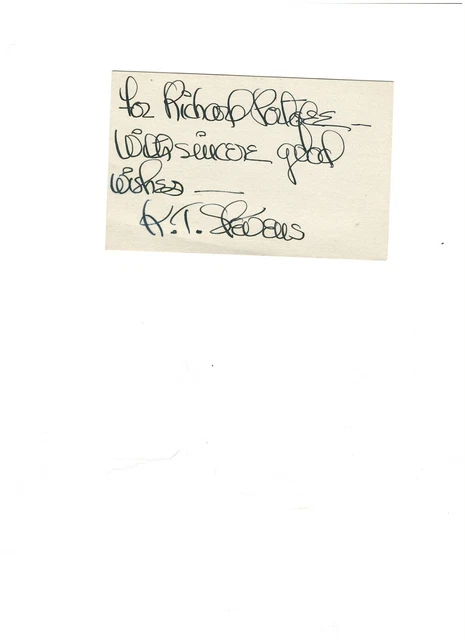 For Richard
With sincere good
wishes —
K.T. Stevens